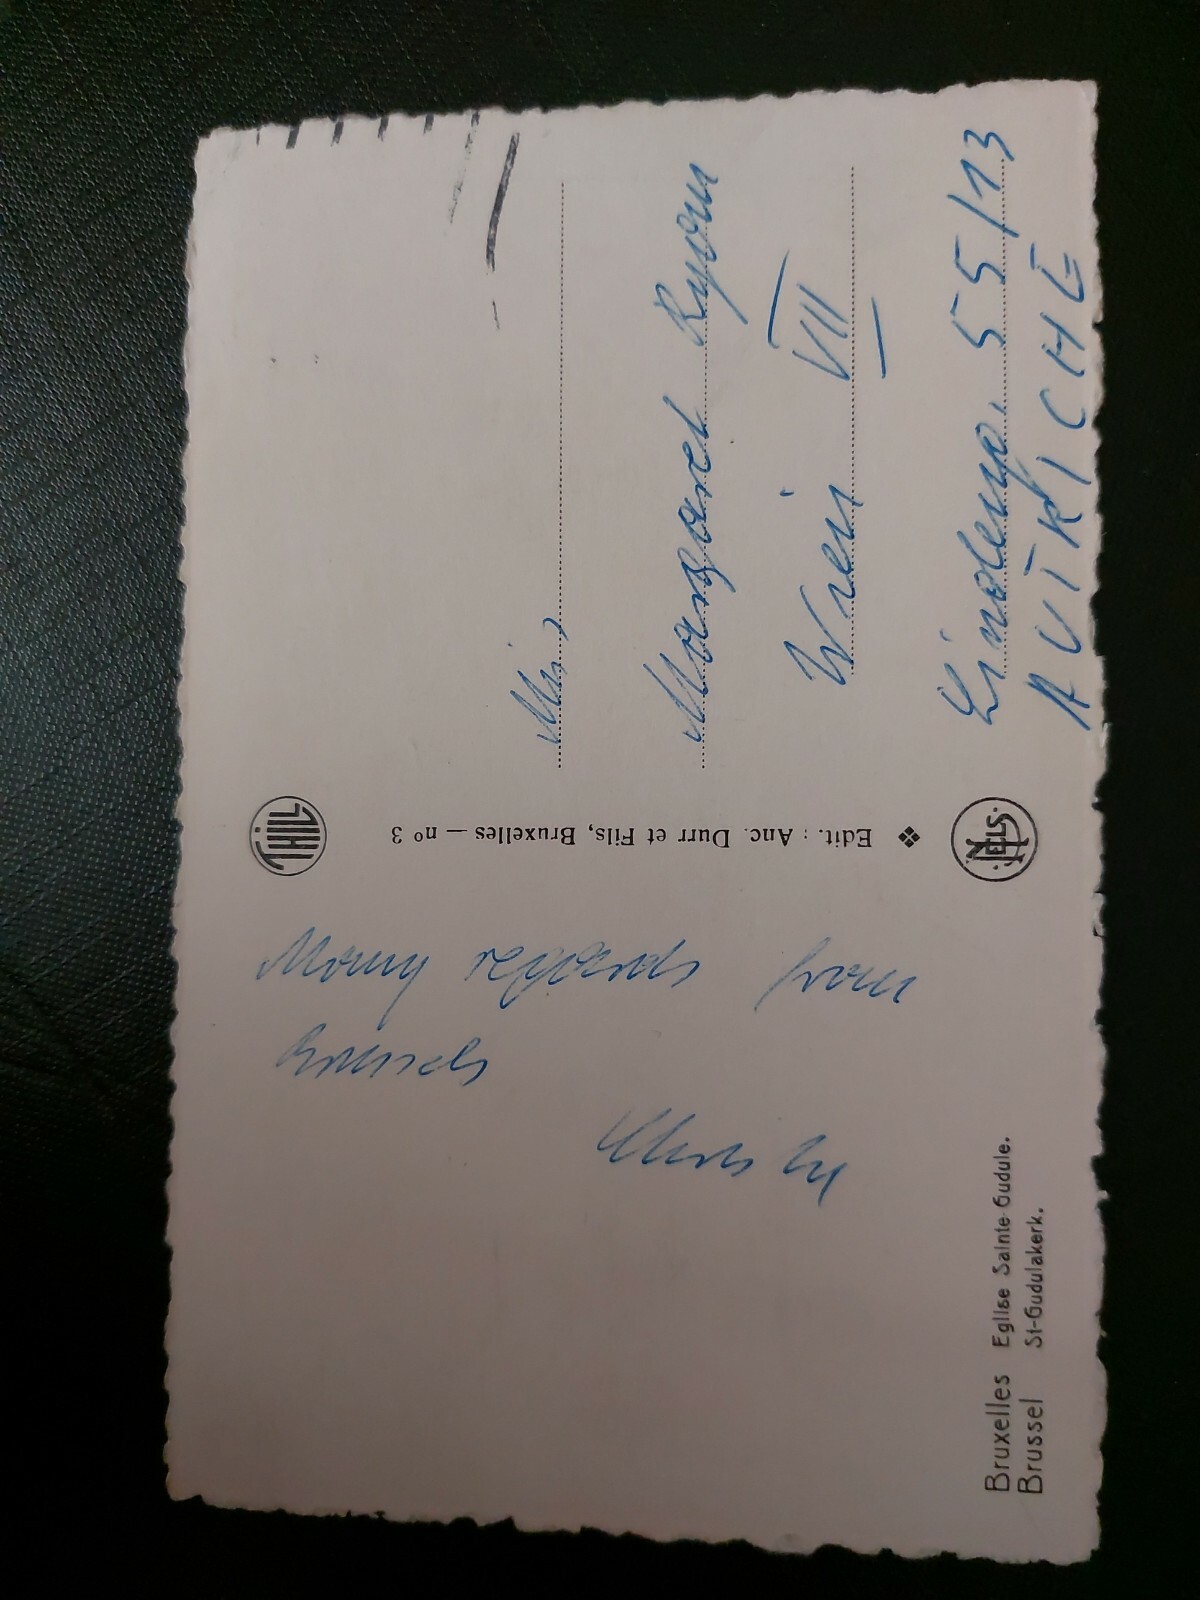 Many regards from
Brussels
Bruxelles Eglise Sainte Gudule.
Brussel St-Gudulakerk.
THILL
Edit.: Anc. Durr et Fils, Bruxelles — nº 3
NELS
Margaret
Wien VII
Lindeng. 55/13
AUTRICHE